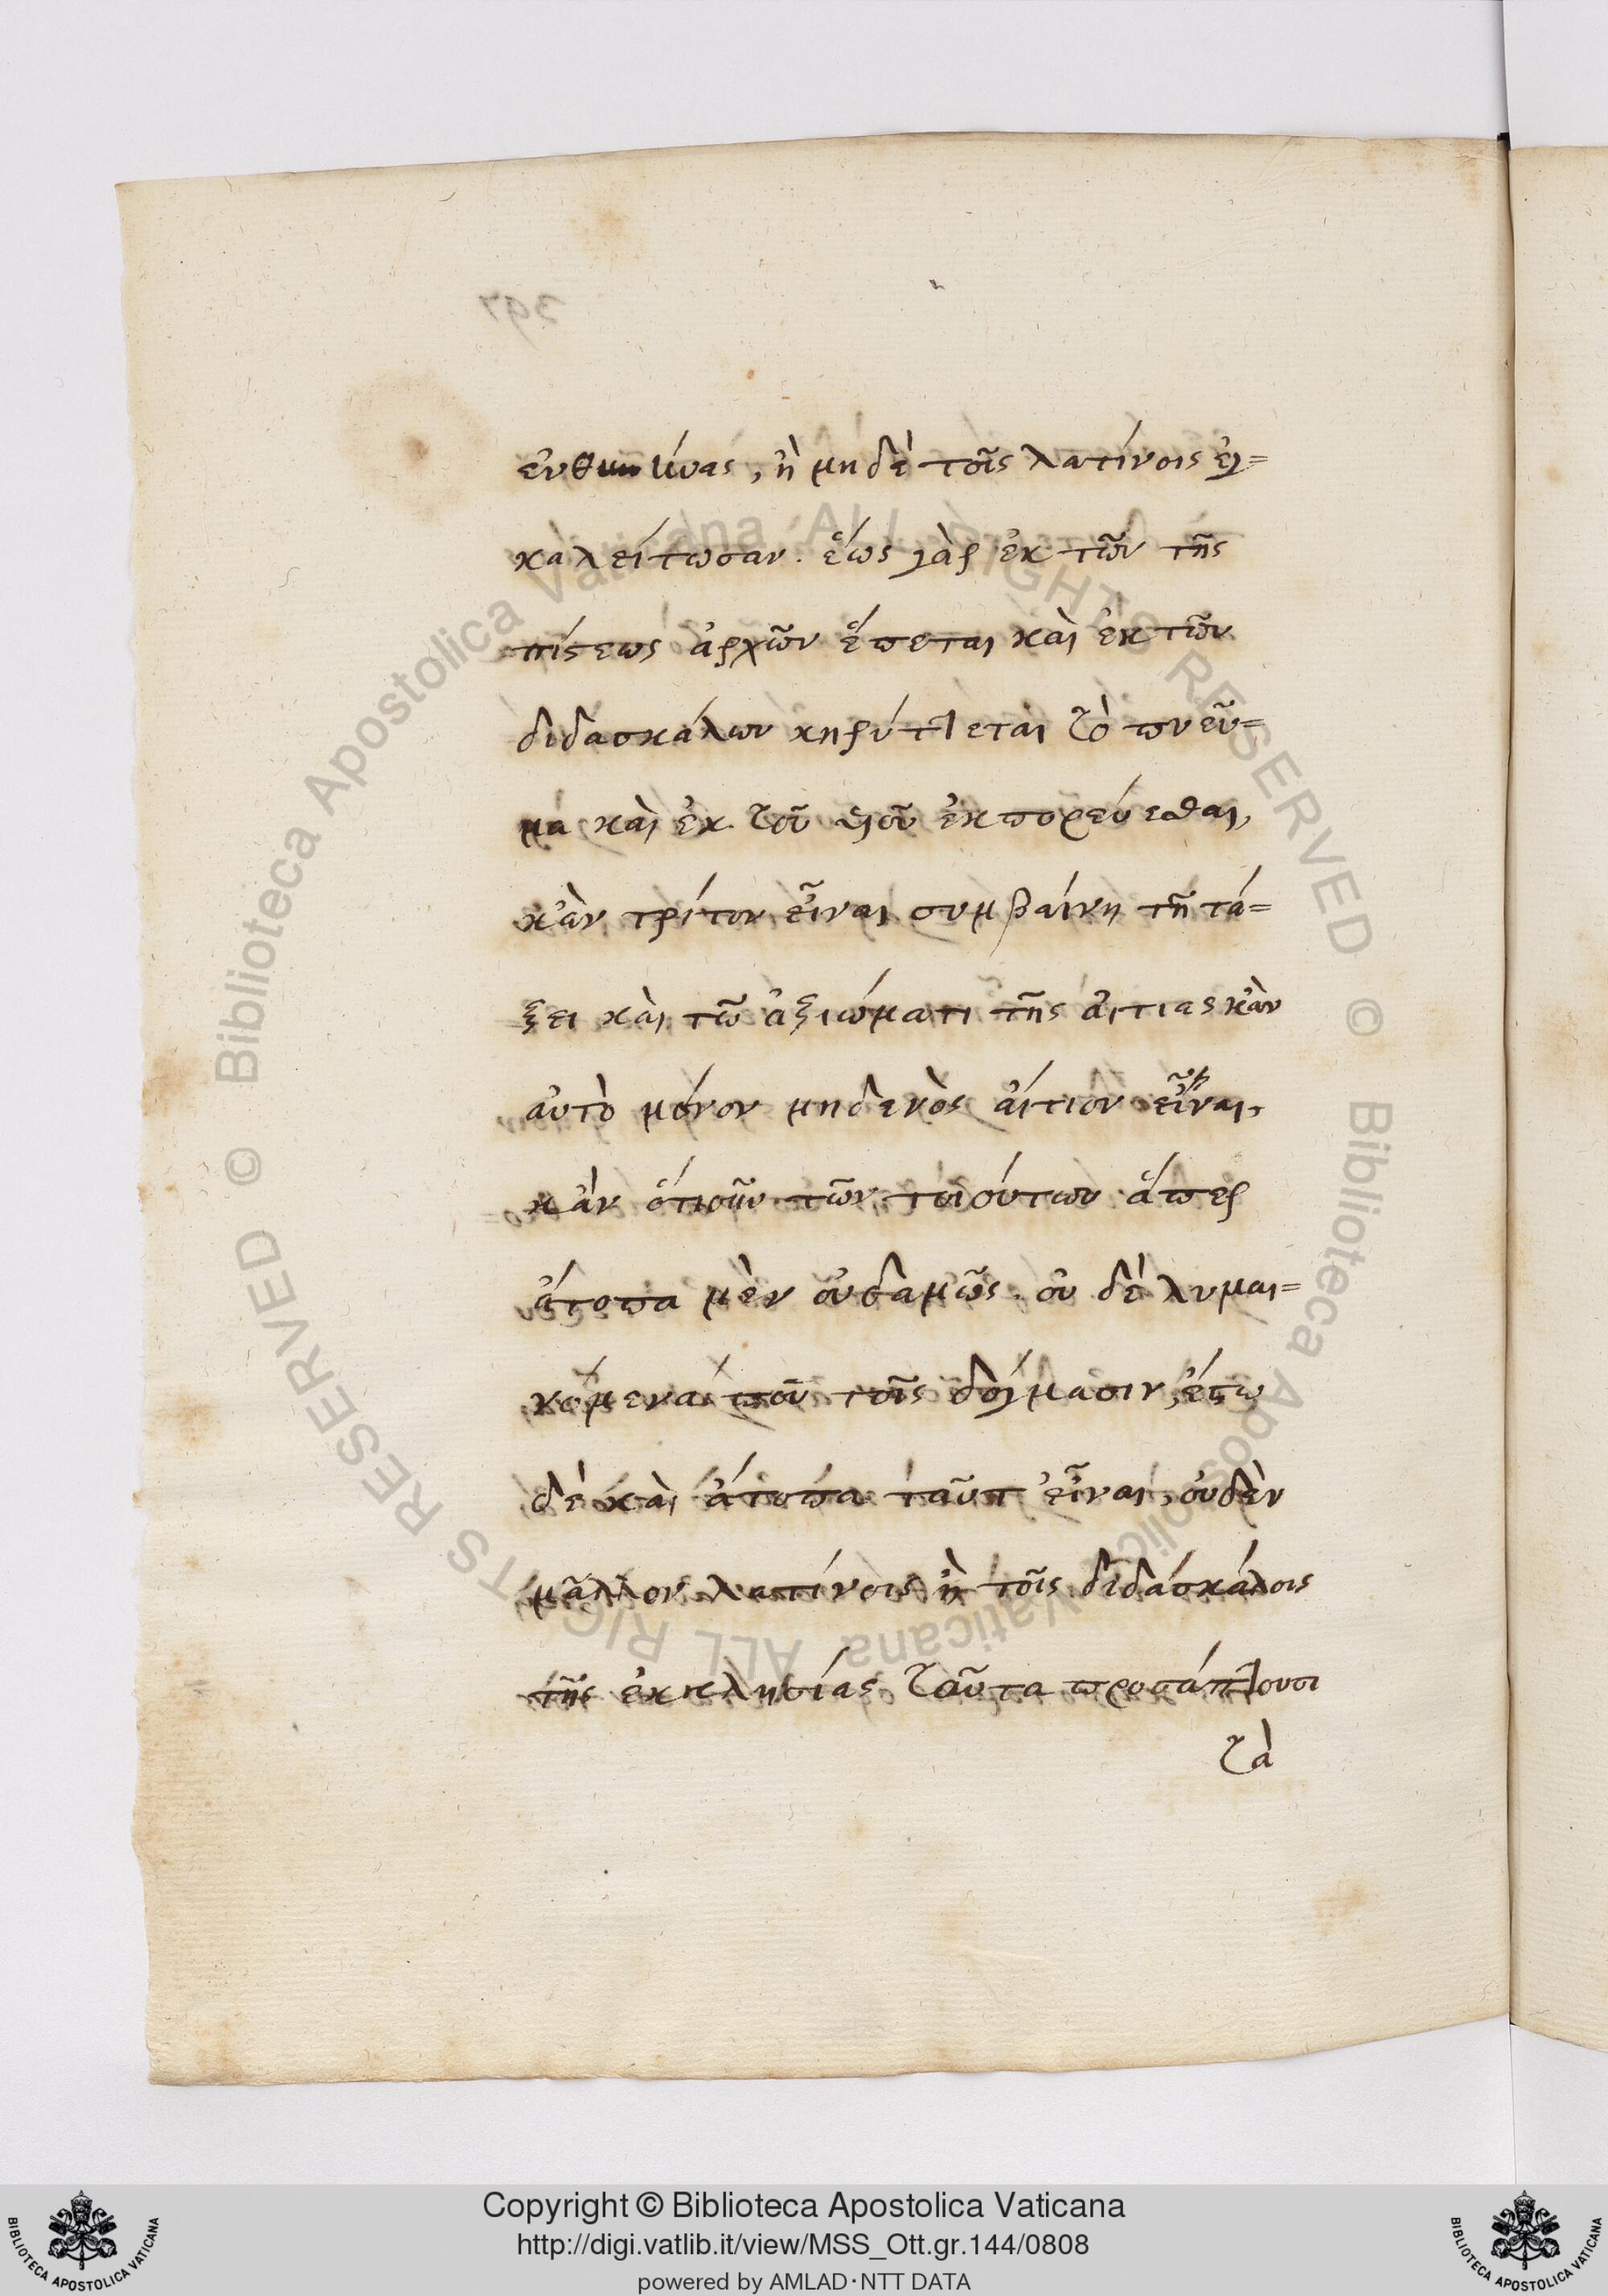 μηδὲ τοῖς λατίνοις ἐγ=
καλείτωσαν. ἕως γὰρ ἐκ τῶν τῆς
πίστεως ἀρχῶν ἕπεται καὶ ἐκ τῶν
διδασκάλων κηρύττεται τὸ πνεῦ=
μα καὶ ἐκ τοῦ υἱοῦ ἐκπορεύεσθαι,
κἂν τρίτον εἶναι συμβαίνη τῆ τά=
ξει καὶ τῶ ἀξιώματι τῆς αἰτίας κἂν
αὐτὸ μόνον μηδενὸς αἴτιον εἶναι,
κἂν ὁτιοῦν τῶν τοιούτων ἅπερ
ἄτοπα μὲν οὐδαμῶς, οὐ δὲ λυμαι=
νόμενα που τοῖς δόγμασιν, ἔστω
δὲ καὶ ἄτοπα ταῦτ εἶναι, οὐδὲν
μᾶλλον λατίνοις ἢ τοῖς διδασκάλοις
τῆς ἐκκλησίας ταῦτα προσάπτουσι
τὰ
397
Copyright © Biblioteca Apostolica Vaticana
http://digi.vatlib.it/view/MSS_Ott.gr.144/0808
powered by AMLAD·NTT DATA
BIBLIOTECA APOSTOLICA VATICANA
BIBLIOTECA APOSTOLICA VATICANA
© Biblioteca Apostolica Vaticana ALL RIGHTS RESERVED
© Biblioteca Apostolica Vaticana ALL RIGHTS RESERVED